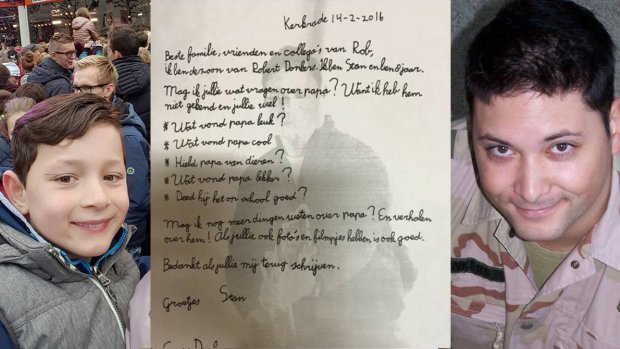 Kerkrade 14-2-2016
Beste familie, vrienden en collega's van Rob,
ik ben de zoon van Robert Donkers. Ik ben Stan en ben 8 jaar.
Mag ik jullie wat vragen over papa? Want ik heb hem
niet gekend en jullie wel!
* Wat vond papa leuk?
* Wat vond papa cool
* Hield papa van dieren?
* Wat vond papa lekker?
* Deed hij het op school goed?
Mag ik nog meer dingen weten over papa? En verhalen
over hem! Als jullie ook foto's en filmpjes hebben is ook goed.
Bedankt als jullie mij terug schrijven.
Groetjes Stan